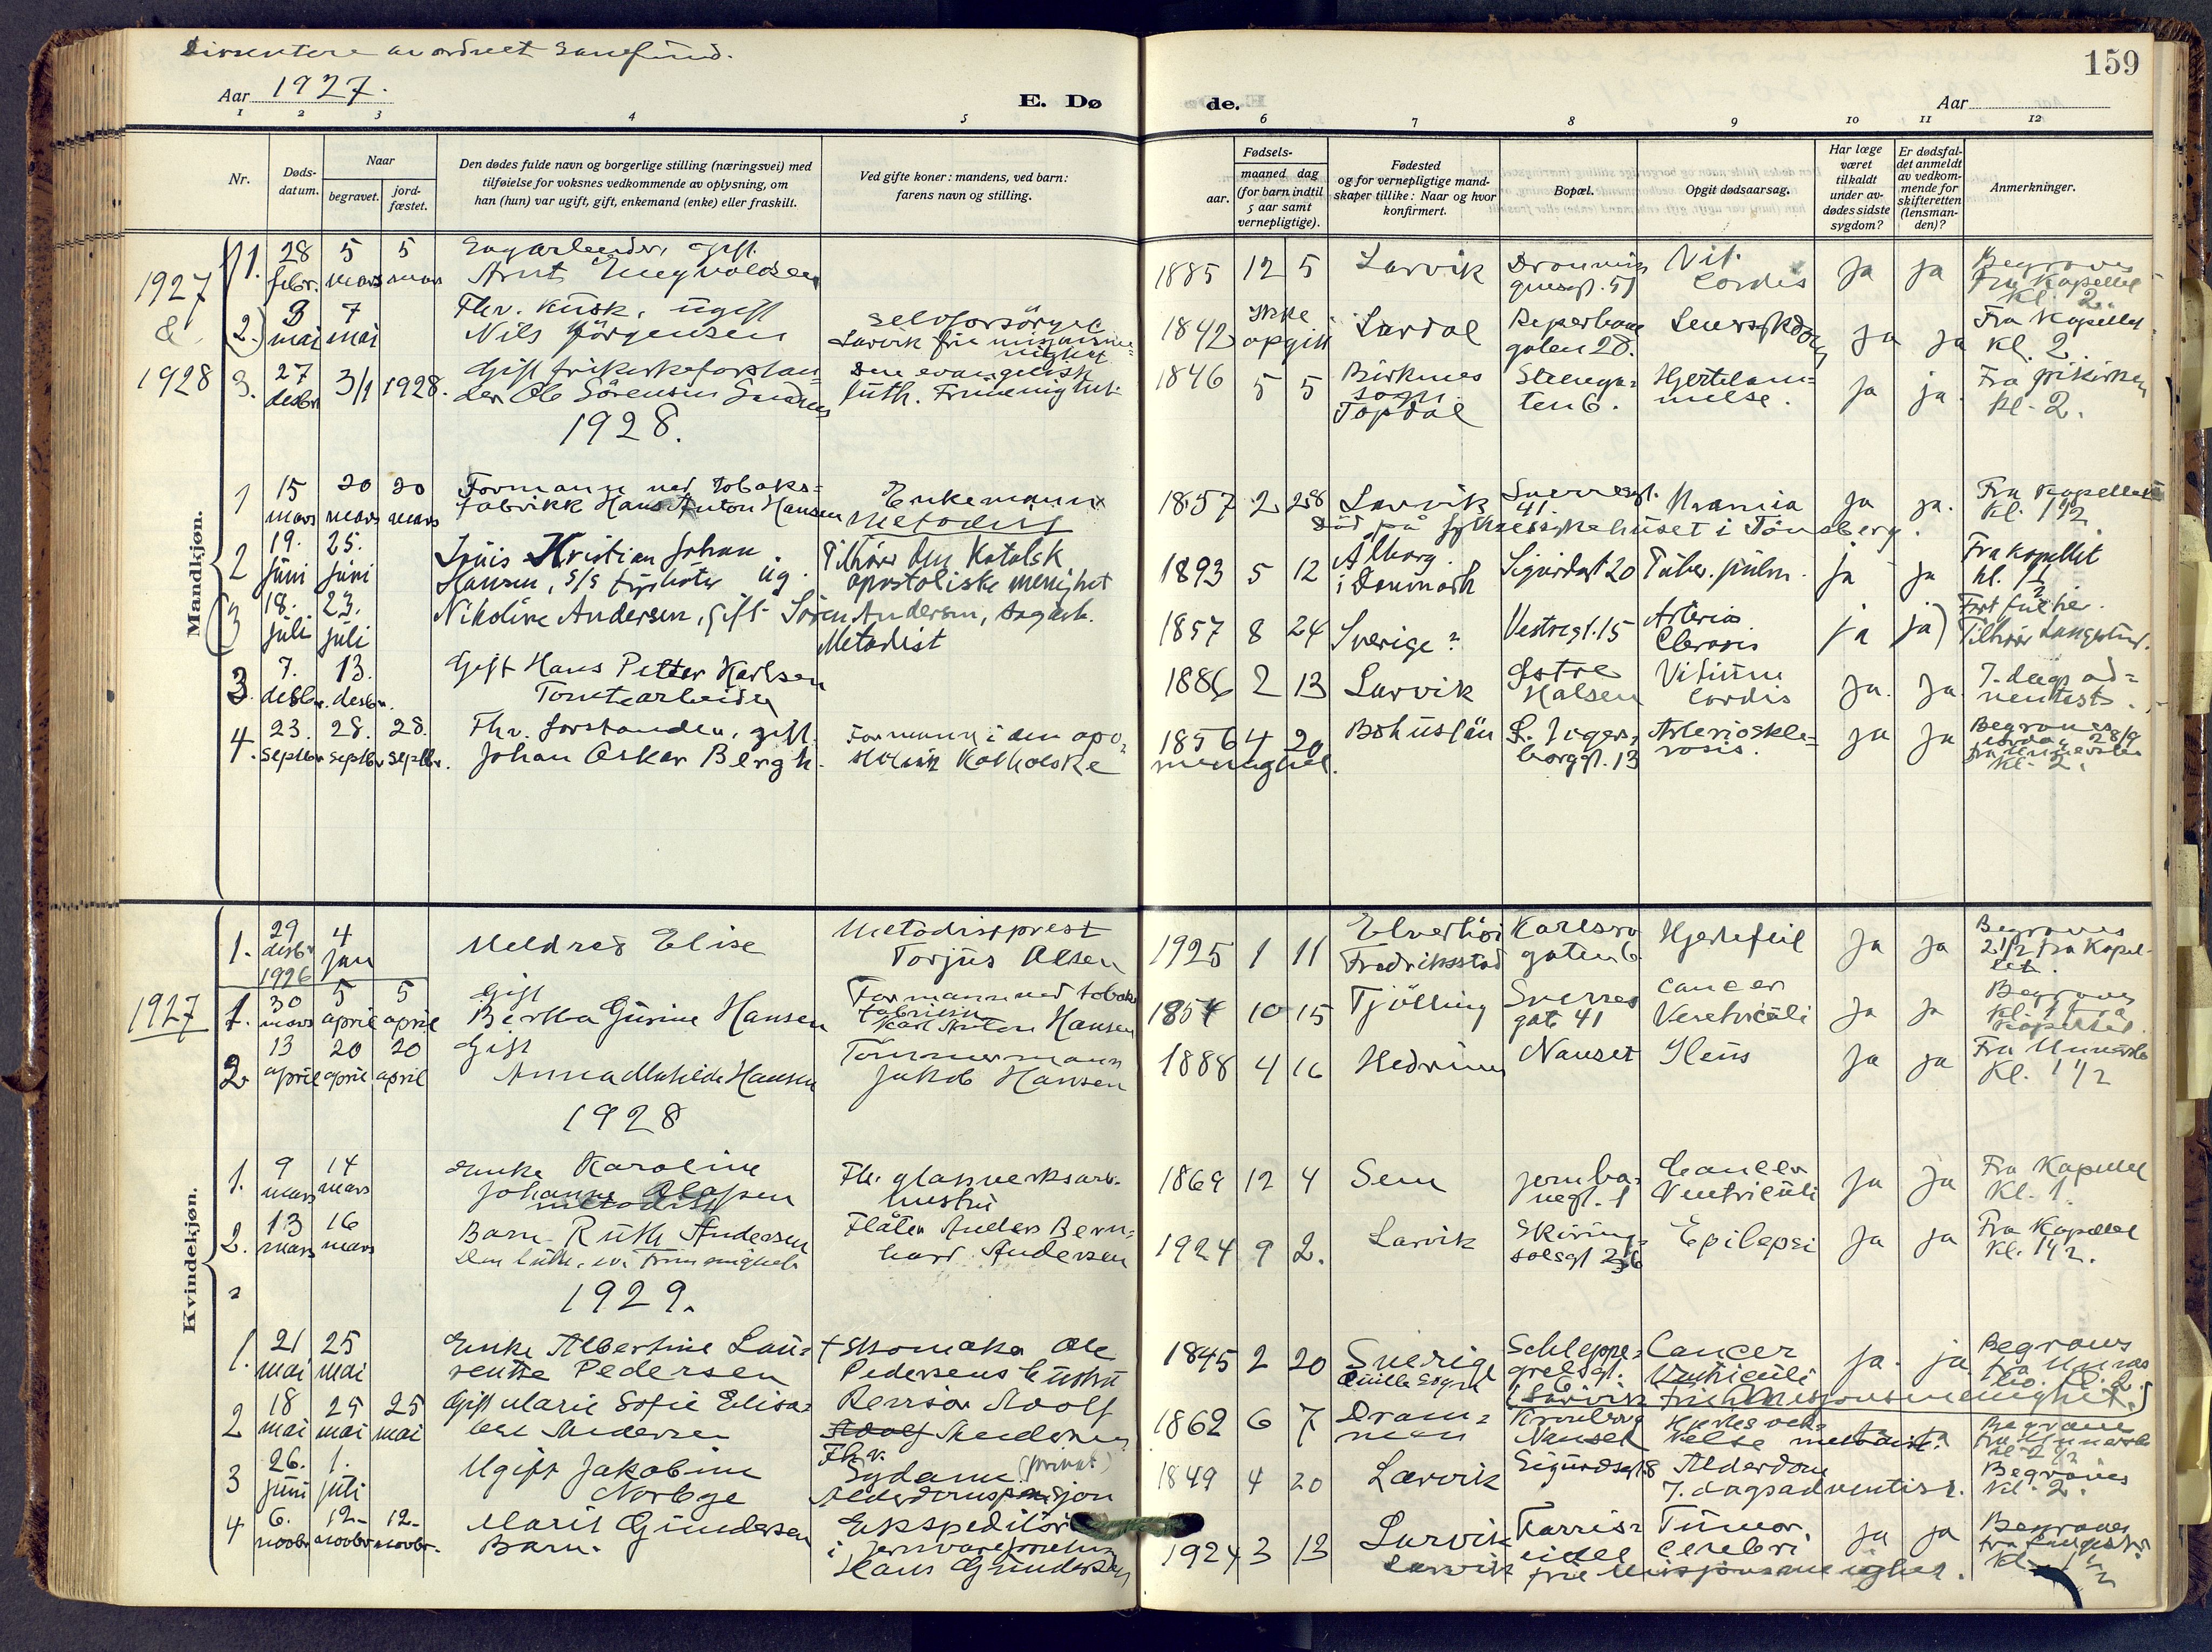 Dissentere av ordnet samfund.
159
Aar 1927.
E. Dø
de.
Aar
1 2 3 4 5 6 7 8 9 10 11 12
Nr.
Døds-
datum.
Naar
begravet.
jord-
fæstet.
Den dødes fulde navn og borgerlige stilling (næringsvei) med
tilføielse for voksnes vedkommende av oplysning, om
han (hun) var ugift, gift, enkemand (enke) eller fraskilt.
Ved gifte koner: mandens, ved barn:
farens navn og stilling.
Fødsels-
aar.
maaned dag
(for barn indtil
5 aar samt
vernepligtige).
Fødested
og for vernepligtige mand-
skaper tillike: Naar og hvor
konfirmert.
Bopæl.
Opgit dødsaarsag.
Har læge
været
tilkaldt
under av-
dødes sidste
sygdom?
Er dødsfal-
det anmeldt
av vedkom-
mende for
skifteretten
(lensman-
den)?
Anmerkninger.
Mandkjøn.
1927
&
1928
1. 28 febr. 5 mars 5 mars
gift
Arnt Engvoldsen
1885 12 5 Larvik Dronnin
gensgt. 51 Vit.
Cordis ja ja Begraves
Fra Kapellet
Kl. 2.
2. 3 mai 7 mai
Fhv. Kusk, ugift
Nils Jörgensen
selvforsörget
Larvik frie
1842 ikke
opgitt Lardal Reperbane
gaten 28. ja ja Fra Kapellet
Kl. 2
3. 27 desbr 3/1 1928.
Gift frikirkeforstan-
der Ole Sörensen
Den evangelisk
luth. Frimenighet
1846 5 5 Birkenes
sogn
Topdal Steenga-
ten 6. Hjertelam-
melse. ja ja Fra frikirken
kl. 2.
1928.
1 15 mars 20 mars 20 mars
Formann ved tobaks-
fabrikk Hans Anton Hansen
Enkemann
Metodist
1857 2 28 Larvik Sverresgt.
41 Uramia ja ja. Fra Kapellet
Kl. 1 1/2
Död på fylkessykehuset i Tönsberg.
2 19. juni 25. juni
Louis Kristian Johan
Hansen, s/s fyrböter ug.
Tilhörer den Katolsk
apostoliske menighet
1893 5 12 Ålborg
i Danmark Sigurdsgt 20 Tuber. pulm. ja ja Fra kapellet
kl. 1 1/2
3 18. juli 23. juli
Nikoline Andersen, gift Sören Andersen, sagarb.
Metodist
1857 8 24 Sverige? Vestregt. 15 Arterio
Clerosis ja ja)
Tilhörer Langestrand.
3. 7. desbr. 13. desbr.
Gift Hans Petter Karlsen
Tomtearbeider
1886 2 13 Larvik Østre
Halsen Vitium
Cordis ja. ja 7. dags ad-
ventist.
4. 23. septbr 28. septbr 28. septbr.
Fhv. forstander, gift.
Johan Oskar Bergh.
Formann i den apo-
stolisk Katholske
menighet.
1856 4 20 Bohuslän borggt. 13 Arterioskle-
rosis. ja ja Begraves
lördag 29/9
Kl. 2.
Kvindekjøn.
1. 29 desbr 1926 4 jan
Meldred Elise
Metodistprest
Torjus Olsen
1925 1 11
Fredriksstad Karlsro
gaten 6 Hjertefeil ja ja Begraves
2 1/2 fra Kapel-
let.
1927
1. 30 mars 5 april 5 april
Gift
Bertha Gurine Hansen
Formann ved tobaks
fabrikk
Karl Anton Hansen
1854 10 15 Tjölling Sverres
gate 41 Cancer
Ventriculi ja ja Begraves
2. 13 april 20 april 20 april
Gift
Anna Mathilde Hansen
Tömmermann
Jakob Hansen
1888 4 16 Hedrum Nanset Ileus ja ja
Kl. 1 1/2
1928
1. 9 mars 14 mars
Enke Karoline
Johanne Olafsen
metodist
Fhv. glassverksarb.
hustru
1869 12 4 Sem Jernba-
negt. 1 Cancer
Ventriculi ja ja Fra Kapellet
Kl. 1.
2. 13 mars 16 mars
Barn Ruth Andersen
Den luth. ev. Frimenighet
Flåter Anders Bern-
hard Andersen
1924 9 2. Larvik Skirings-
salsgt 26 Epilepsi ja ja Fra Kapellet
Kl. 1 1/2.
1929.
1. 21 mai 25 mai
Enke Albertine Lau-
rentze Pedersen
† Skomaker Ole
Pedersens hustru
1845 2 20 Sverige
Quille Sogn Schleppe-
grelsgt. Cancer
Ventriculi ja. ja Begraves
(Larvik frie Misjonsmenighet.)
2 18 mai 25 mai 25 mai
Gift Marie Sofie Elisa-
bet Andersen
Revisor Adolf
Andersen
1862 6 7 Dram-
men
Nanset metodist. ja Begraves
3 26. juni 1. juli
Ugift Jakobine
Norberge
Fhv.
Sydame (privat)
Alderdomspensjon
1849 4 20 Larvik Sigurdsgt 8 Alderdom
7. dagsadventist. Begraves
kl. 2.
4 6. novbr 12- novbr 12- novbr.
Marit Gundersen
Barn.
Ekspeditör
i jernvareforretn.
Hans Gundersen
1924 3 13 Larvik Farris-
eidet Tumor
Cerebri ja ja Begraves
Larvik frie Misjonsmenighet.